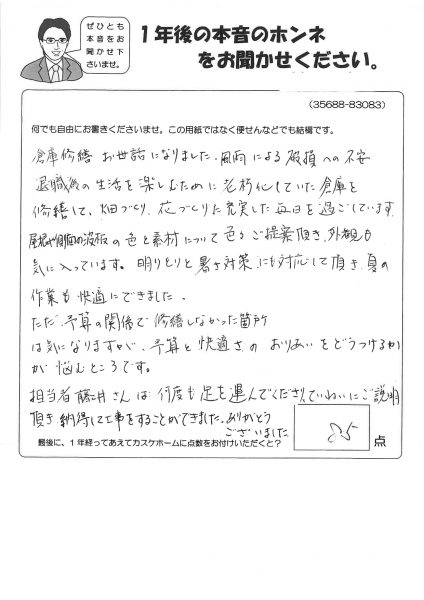 ぜひとも
本音をお
聞かせ下
さいませ。
1年後の本音のホンネ
をお聞かせください。
(35688-83083)
何でも自由にお書きくださいませ。この用紙ではなく便せんなどでも結構です。
倉庫修繕 お世話になりました。風雨による破損への不安
退職後の生活を楽しむために老朽化していた倉庫を
修繕して、畑づくり、花づくりに充実した毎日を過ごしています。
屋根や側面の波板の色と素材について色々ご提案頂き、外観も
気に入っています。明りとりと暑さ対策にも対応して頂き、夏の
作業も快適にできました。
ただ、予算の関係で修繕しなかった箇所
は気になりますが、予算と快適さのおりあいをどうつけるか
が悩むところです。
担当者藤井さんは何度も足を運んでくださり、ていねいにご説明
頂き納得して工事をすることができました。ありがとう
ございました
最後に、1年経ってあえてカスケホームに点数をお付けいただくと?
85
点